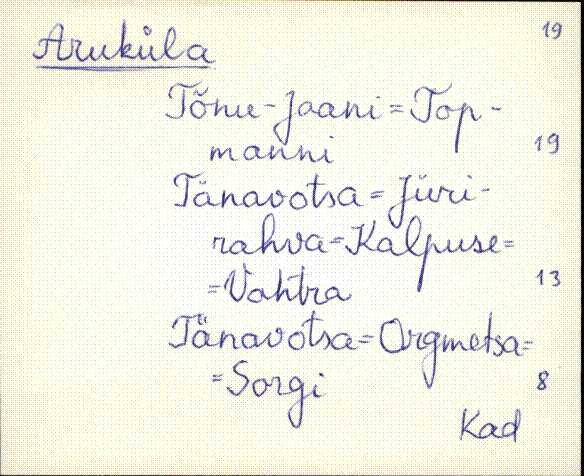 19
Aruküla
Tõnu-Jaani = Top-
manni 19
Tänavotsa = Jüri-
rahva = Kalpuse =
= Vahtra 13
Tänavotsa = Orgmetsa =
= Sorgi 8
Kad